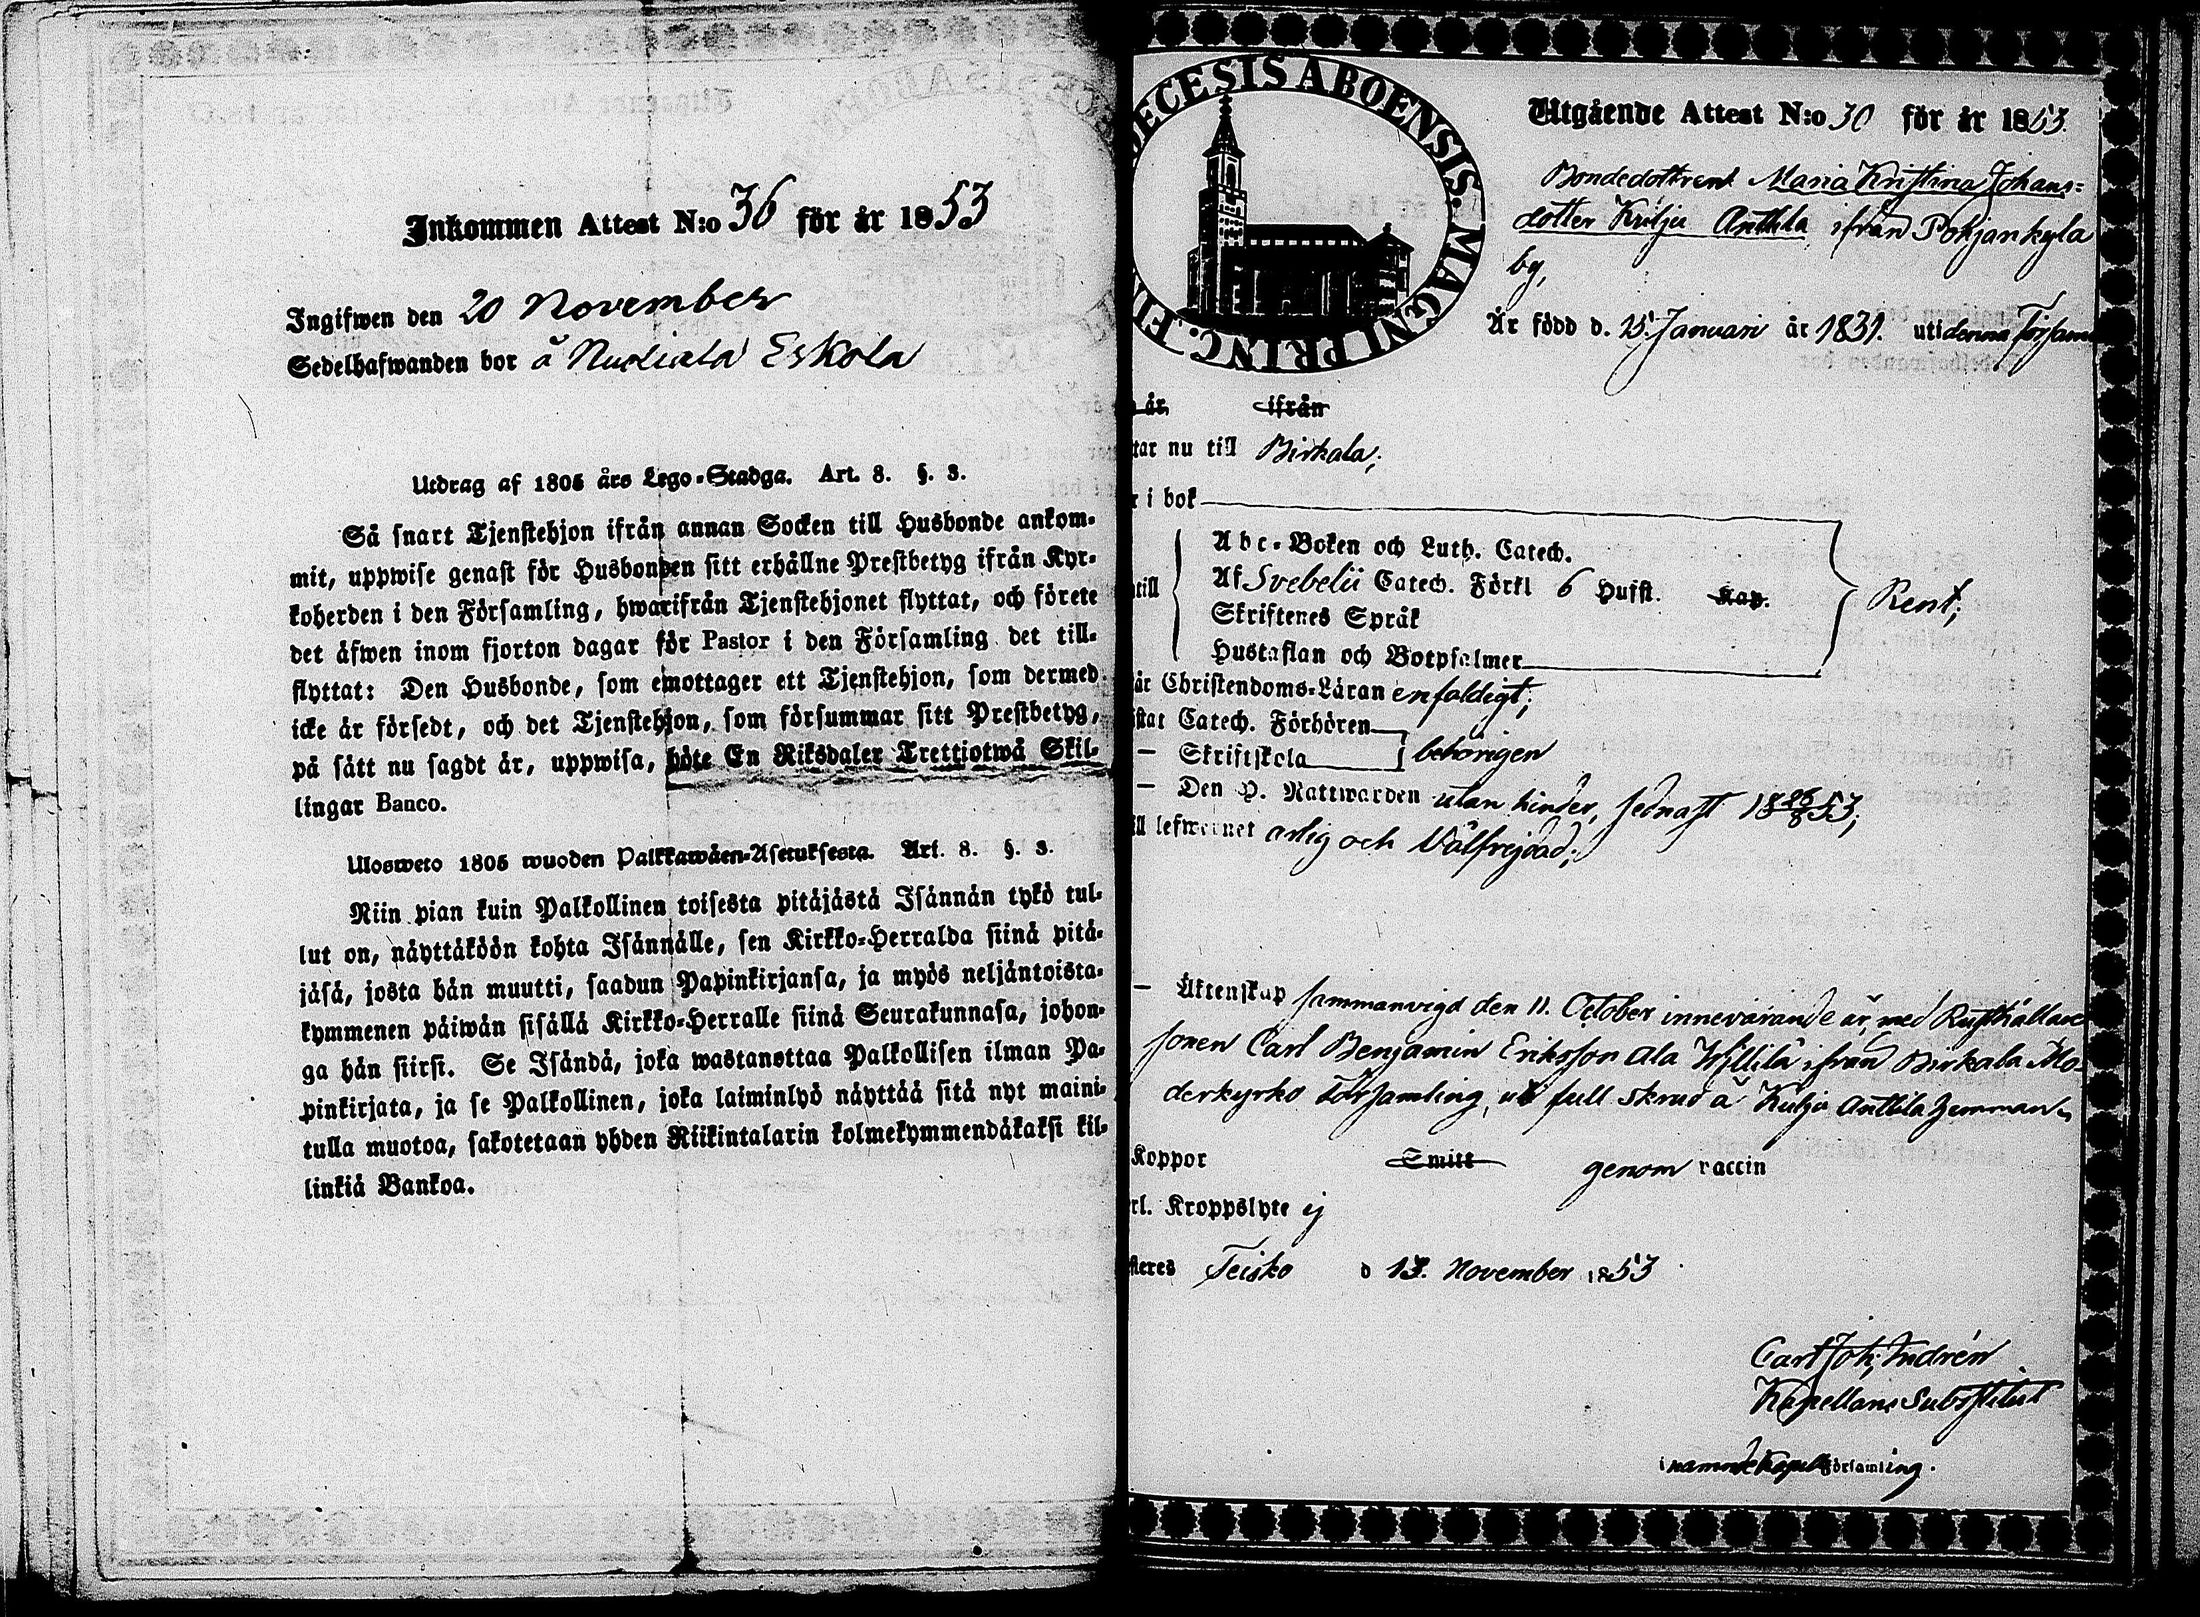 Inkommen Attest N:o 36 för år 1853
Ingifwen den 20 November
Sedelhafwanden bor å Eskola
Utdrag af 1805 års Lego-Stadga. Art. 8. §. 3.
Så snart Tjenstehjon ifrån annan Socken till Husbonde ankom-
mit, uppwise genast för Husbonden sitt erhållne Prestbetyg ifrån Kyr-
koherden i den Församling, hwarifrån Tjenstehjonet flyttat, och förete
det äfwen inom fjorton dagar för Pastor i den Församling det till-
flyttat: Den Husbonde, som emottager ett Tjenstehjon, som dermed
icke är försedt, och det Tjenstehjon, som försummar sitt Prestbetyg,
på sätt nu sagdt är, uppwisa, böte En Riksdaler Trettiotwå Skil-
lingar Banco.
Ulosweto 1805 wuoden Palkkawäen-Asetuksesta. Art. 8. §. 3.
Niin pian kuin Palkollinen toisesta pitäjästä Isännän tykö tul-
lut on, näyttäköön kohta Isännälle, sen Kirkko-Herralda siinä pitä-
jäsä, josta hän muutti, saadun Papinkirjansa, ja myös neljäntoista-
kymmenen päiwän sisällä Kirkko-Herralle siinä Seurakunnasa, johon-
ga hän siirsi. Se Isändä, joka wastanottaa Palkollisen ilman Pa-
pinkirjata, ja se Palkollinen, joka laiminlyö näyttää sitä nyt maini-
tulla muotoa, sakotetaan yhden Riikintalarin kolmekymmendäkaksi kil-
linkiä Bankoa.
DIECESIS ABOENSIS. MAGNI PRINC. FIN
Utgående Attest N:o 30 för år 1853.
Bondedottren Maria Kristina Johans-
dotter Kulju Anttila ifrån Pohjankylä
by,
Är född d. 15 Januari år 1831. uti denna Försam
år, ifrån
tar nu till Birkala;
r i bok
Abc-Boken och Luth. Catech.
till Af Svebelii Catech. Förkl 6 Hufst. Kap. Rent;
Skriftenes Språk
Hustaflan och Botpsalmer
är Christendoms-Läran enfaldigt;
istat Catech. Förhören
— Skriftskola behörigen
— Den H. Nattwarden utan hinder, sednast 18 26/6 53;
ill lefwernet ärlig och Välfrejdad;
— Äktenskap sammanvigd den 11. October innevarande år, med Rusthållare
sonen Carl Benjamin Eriksson Ala ifrån Birkala Mo-
derkyrko Församling, uti full skrud å Kulju Anttila hemman
Koppor Smitt genom vaccin
rl. Kroppslyte ej
steres Teisko d 13. November 1853
Carl Joh; Indrén
Kapellans Substitut
i nämnde Kapell Församling.